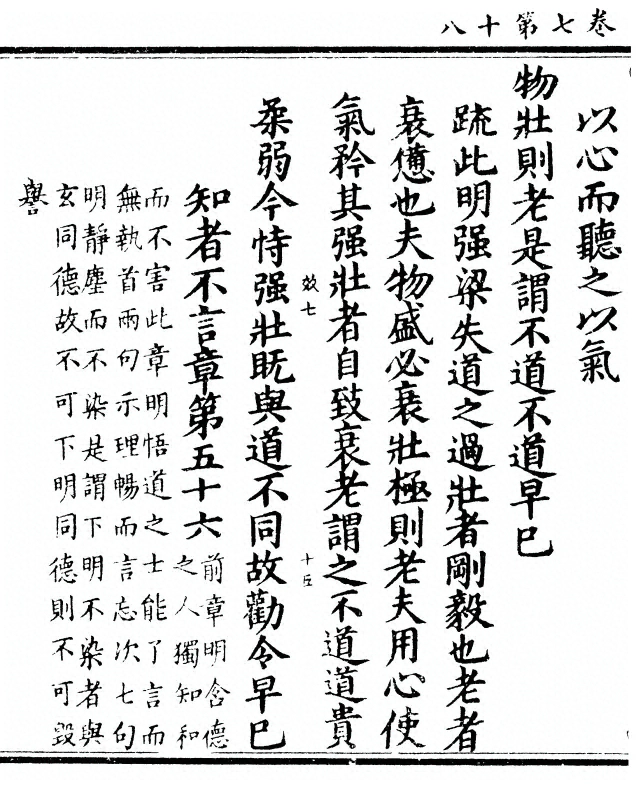 卷七第十八
以心而聽之以氣
物壯則老是謂不道不道早巳
疏此明强梁失道之過壯者剛毅也老者
衰憊也夫物盛必衰壯極則老夫用心使
氣矜其强壯者自致衰老謂之不道道貴
效七
十臣
柔弱今恃强壯旣與道不同故勸令早巳
知者不言章第五十六
前章明含德
之人獨知和
而不害此章明悟道之士能了言而
無執首兩句示理暢而言忘次七句
明靜塵而不染是謂下明不染者與
玄同德故不可下明同德則不可毀
譽